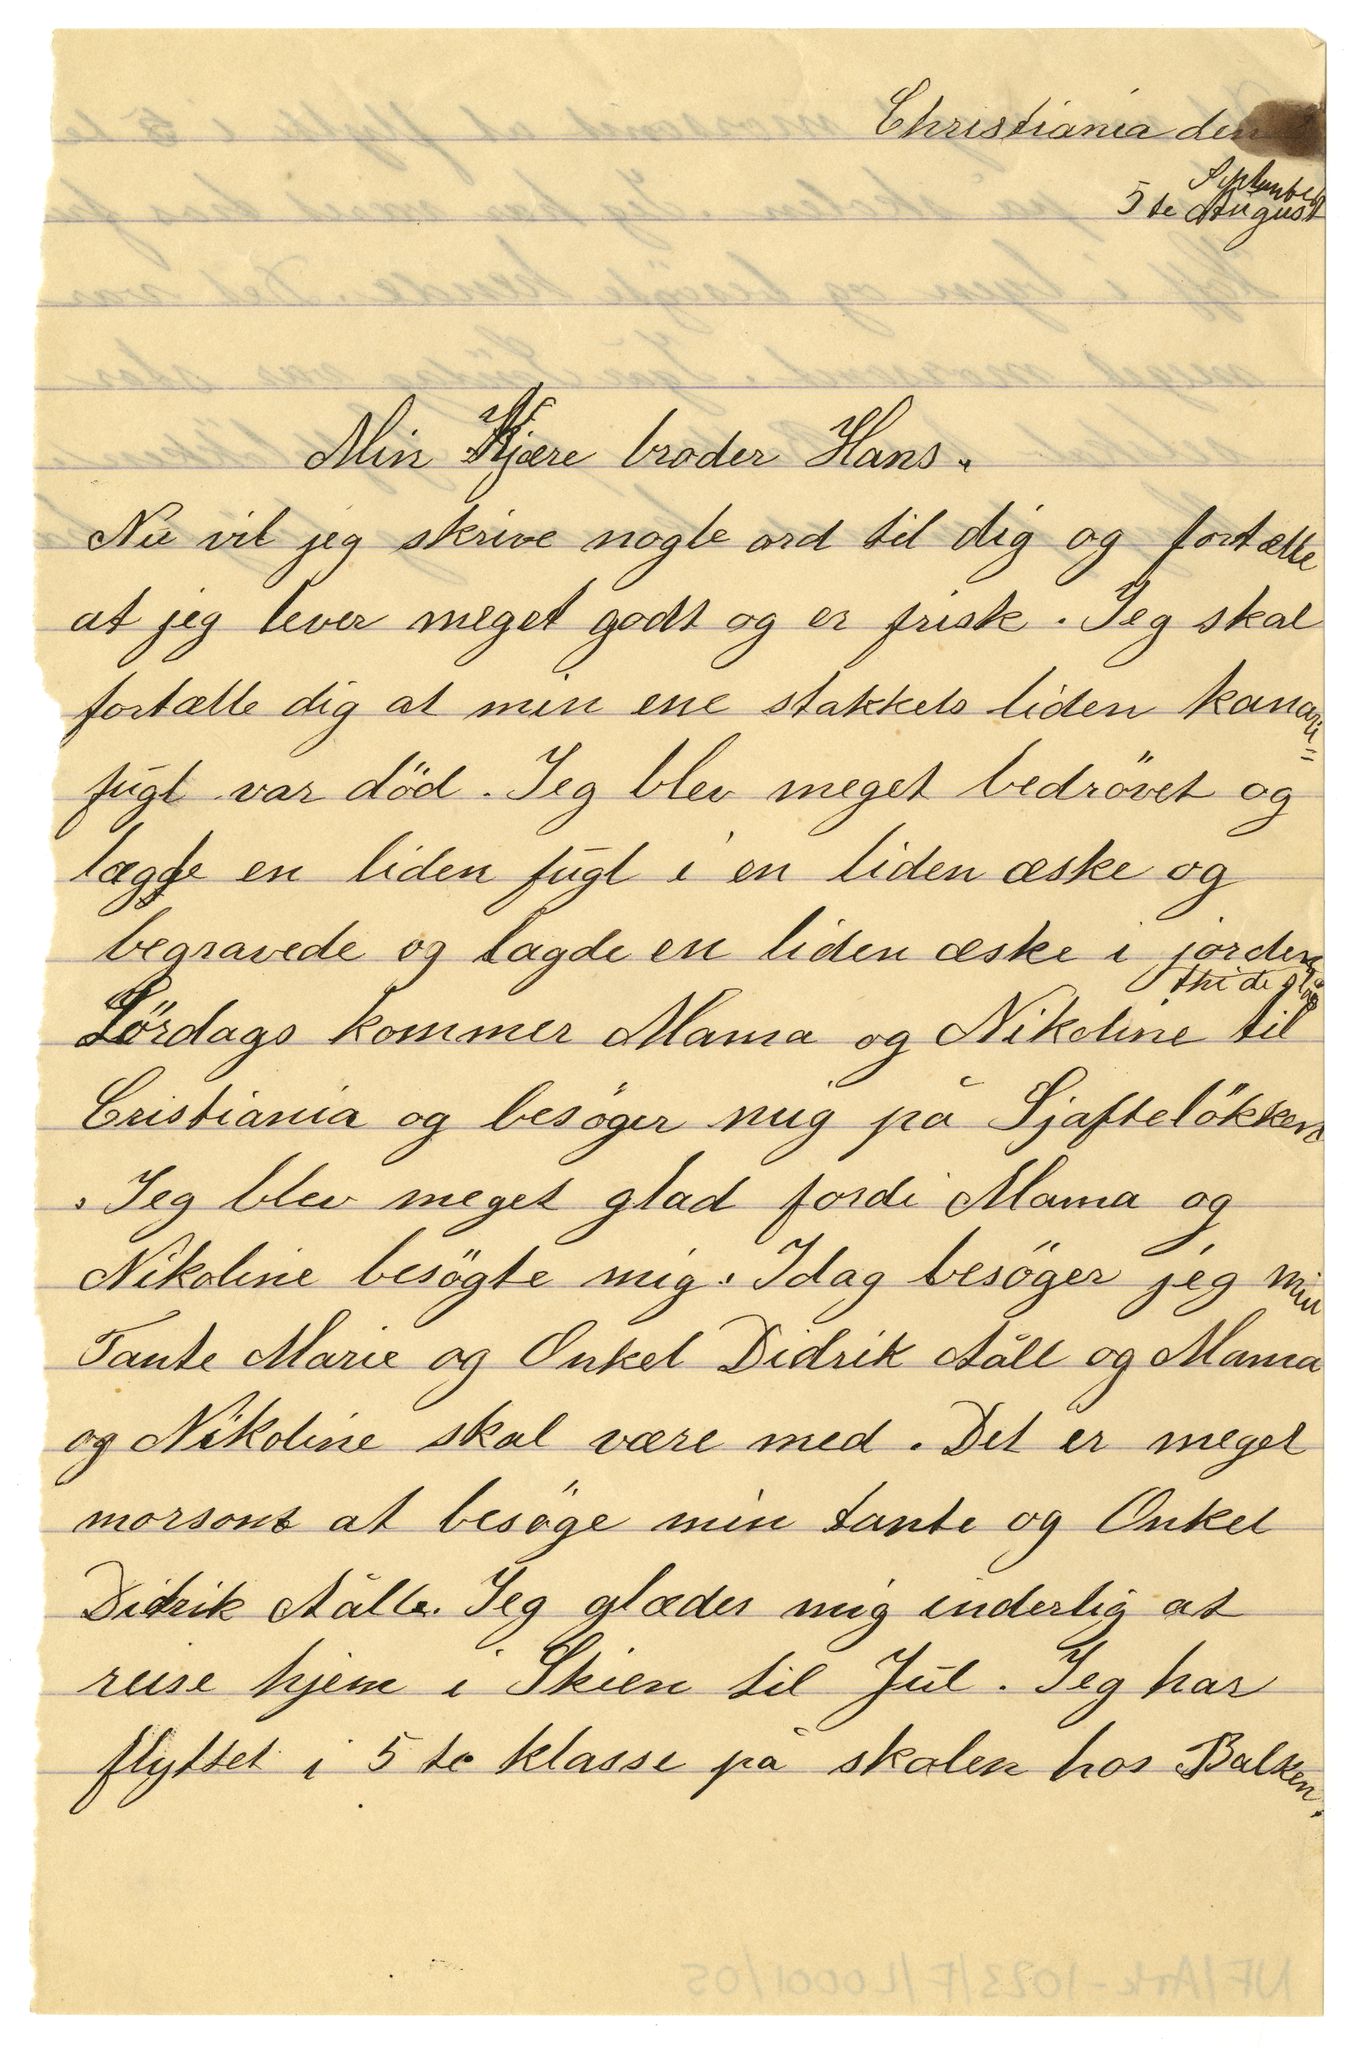 Christiania den
September
5 te August
Min Kjære broder Hans.
Nu vil jeg skrive nogle ord til dig og fortælle
at jeg lever meget godt og er frisk. Jeg skal
fortælle dig at min ene stakkels liden kanari=
fugl var död. Jeg blev meget bedrövet og
lægge en liden fugl i en liden æske og
begravede og lagde en liden æske i jorden
Lördags kommer Mama og Nikoline til
Cristiania og besöger mig på Sjaftelökken
. Jeg blev meget glad fordi Mama og
Nikoline besögte mig. Idag besöger jeg min
Tante Marie og Onkel Didrik Aåll og Mama
og Nikoline skal være med. Det er meget
morsomt at besöge min tante og Onkel
Didrik Aåll. Jeg glæder mig inderlig at
reise hjem i Skien til Jul. Jeg har
flyttet i 5 te klasse på skolen hos Balken.
NF/Ark-1023/F/L0001/05